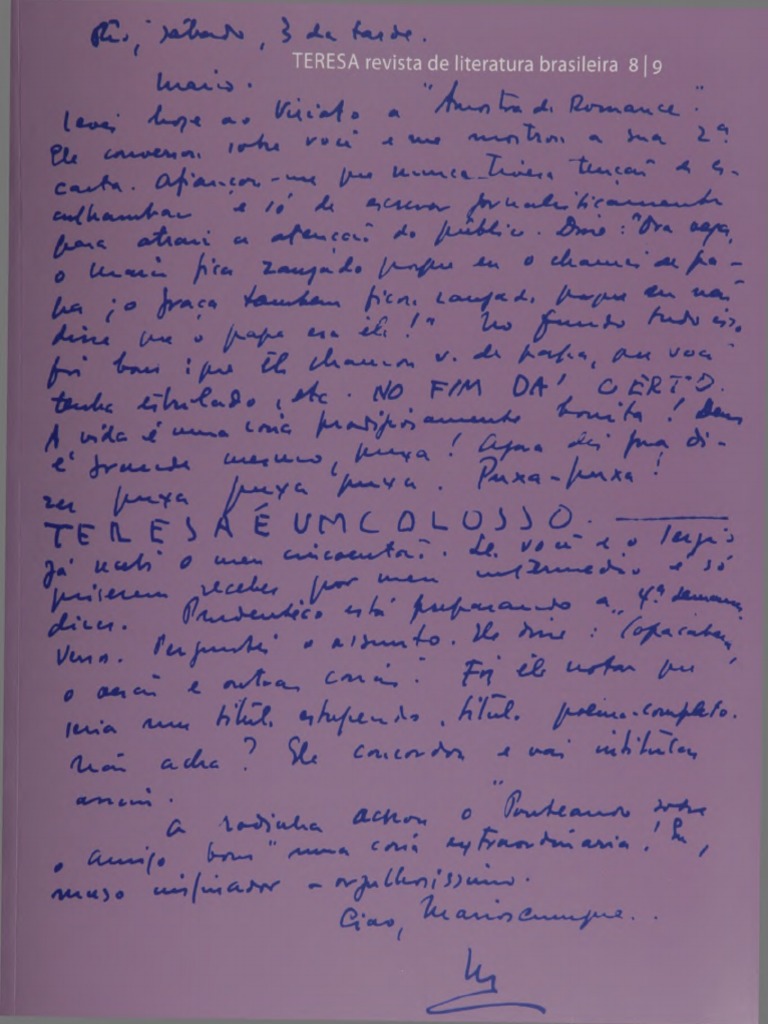 Rio, sábado, 3 da tarde.
TERESA revista de literatura brasileira 8|9
Mario.
Levei hoje ao Viriato a "Amostra de Romance".
Ele conversou sobre você e me mostrou a sua 2ª
carta. Afiançou-me que nunca tivera tenção de es-
culhambar e só de escrever jornalisticamente
para atrair a atenção do público. Disse: "Ora veja,
o Mario fica zangado porque eu o chamei de pa-
pa; o Graça também ficou zangado porque eu não
disse que o papa era êle!" No fundo tudo isso
foi bom: que êle chamou v. de papa, que você
tenha estrilado, etc. NO FIM DÁ CERTO.
A vida é uma coisa prodigiosamente bonita! Deus
é grande mesmo, puxa! Agora dei pra di-
zer puxa puxa puxa. Puxa-puxa!
TERESA É UM COLOSSO.
Já recebi o meu cincoentão. Se você e o Sergio
quiserem receber por meu intermedio é só
dizer. Prudentico está preparando a "4ª semana"
Verso. Perguntei o assunto. Ele disse: Copacabana,
o and e outras coisas. Fiz êle notar que
seria um titulo estupendo, titulo poema-completo.
Não acha? Ele concordou e vai intitular
assim.
A rodinha achou o "Ponteando sobre
o amigo bom" uma coisa extraordinaria! Eu,
muso inspirador orgulhosissimo.
Ciao,
M